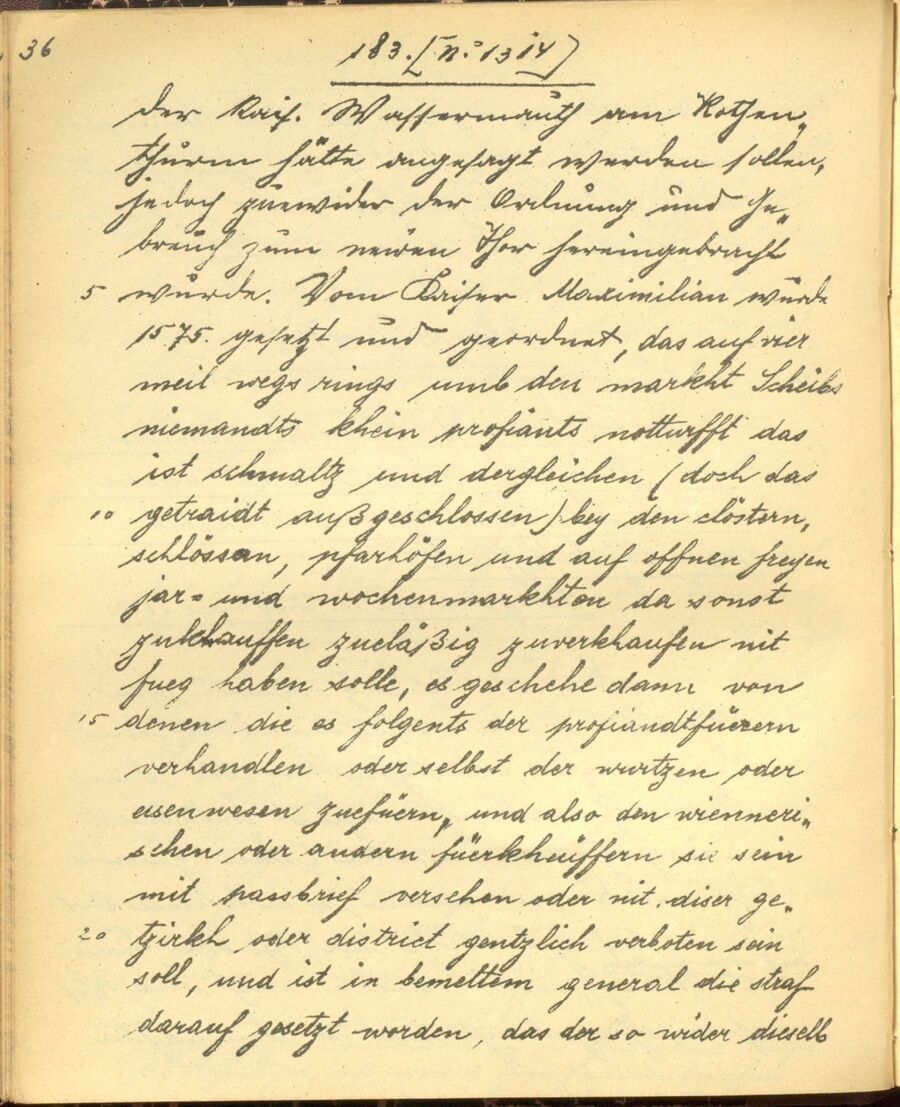 36
183. [N.º 1314]
der kais. Wassermauth am Rothen„
thurm hätte angesagt werden sollen,
jedoch zuewider der Ordnung und Ge„
breuch zum neuen Thor hereingebracht
5 wurde. Vom Kaiser Maximilian wurde
1575. gesetzt und geordnet, das auf vier
meil wegs rings umb den markht Scheibs
niemandts khein profiants notturfft das
ist schmaltz und dergleichen (doch das
10 getraidt außgeschlossen) bey den clöstern,
schlössern, pfarhöfen und auf offnen freyen
jar= und wochenmarkhten da sonst
zukhauffen zueläßig zuverkhaufen nit
fueg haben solle, es geschehe dann von
15 denen die es folgents der profiandtfüerern
verhandlen oder selbst der wurtzen oder
eisenwesen zuefüern„ und also den wienneri„
schen oder andern füerkheüffern sie sein
mit passbrief versehen oder nit diser ge„
20 tzirkh oder district gentzlich verboten sein
soll, und ist in bemeltem general die straf
darauf gesetzt worden, das der so wider dieselb